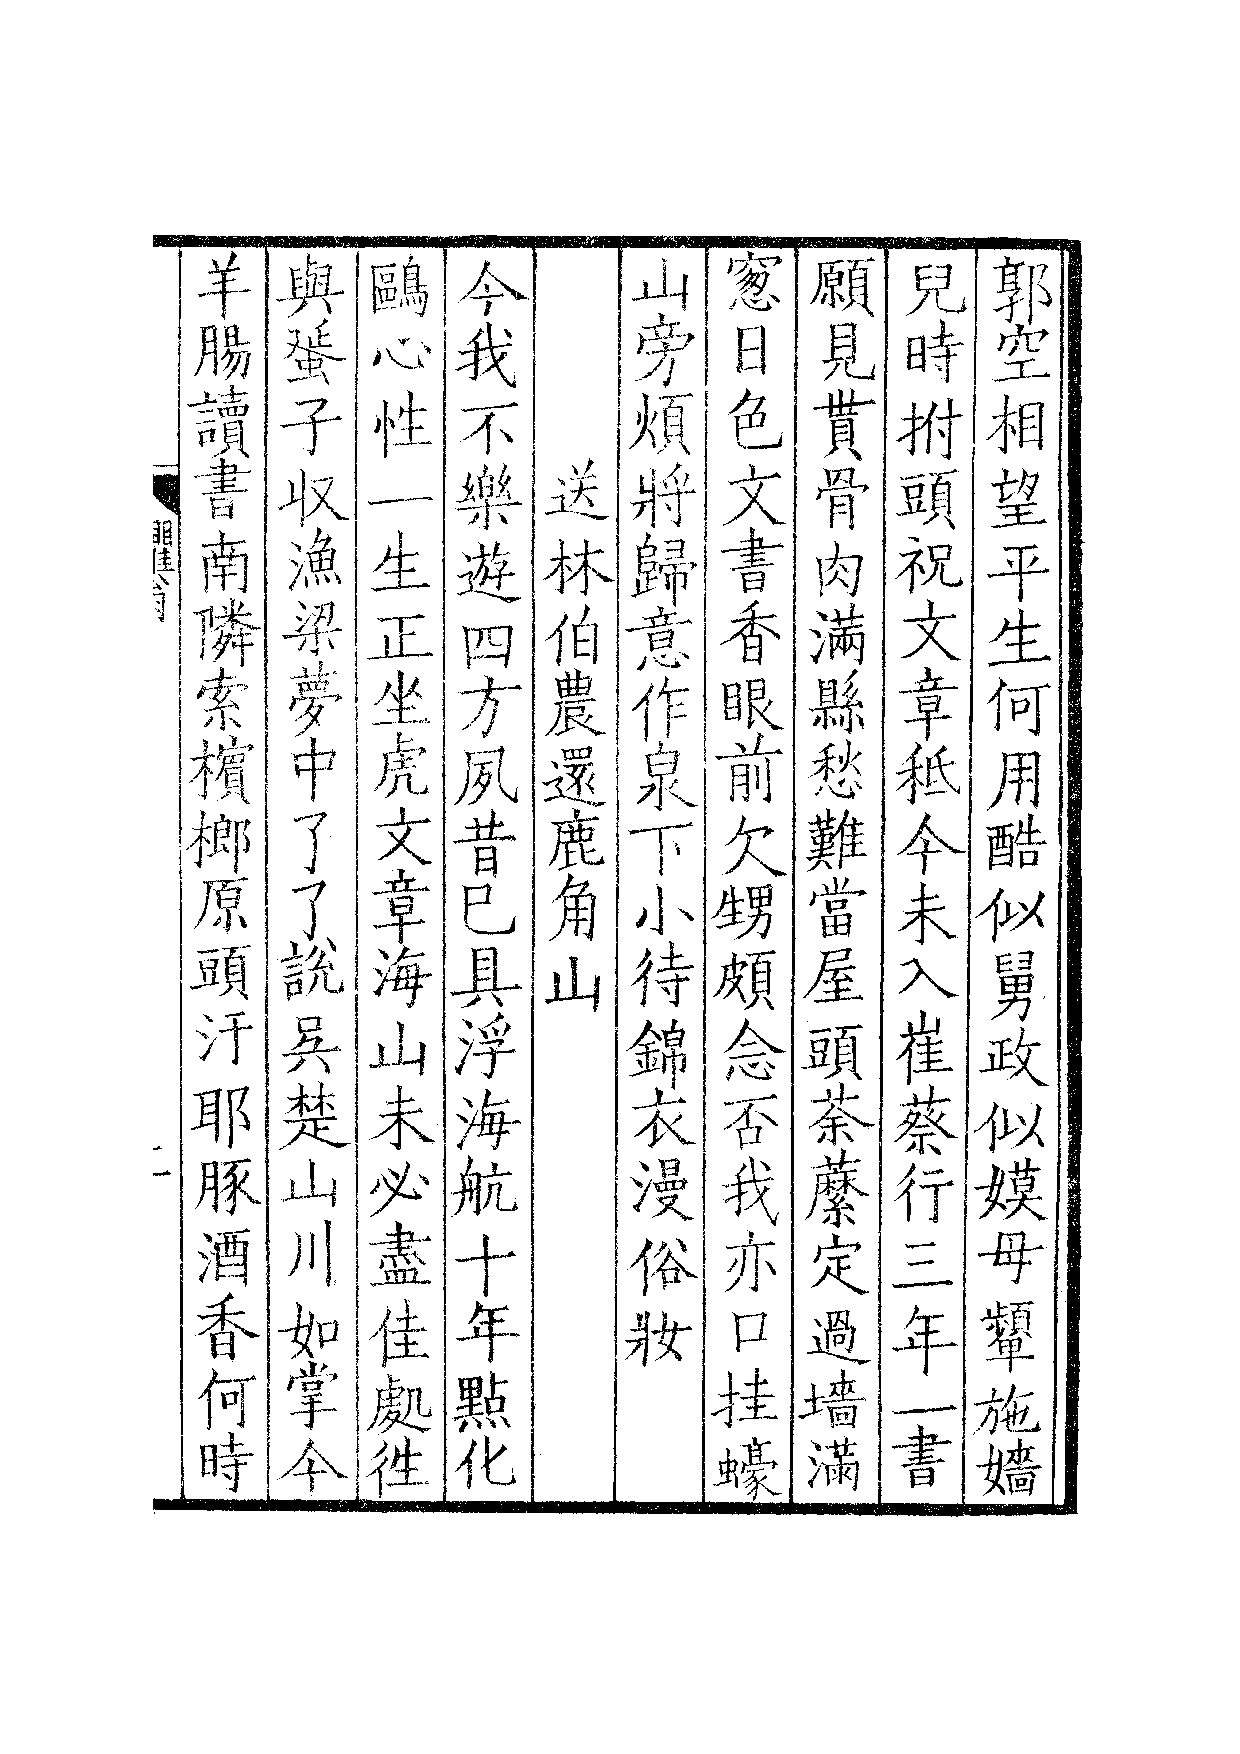 郭空相望平生何用酷似舅政似嫫母顰施嬙
兒時拊頭祝文章秪今未入崔蔡行三年一書
願見貫骨肉滿縣愁難當屋頭荼蘼定過墻滿
窻日色文書香眼前欠甥頗念否我亦口挂蠔
山旁煩將歸意作泉下小待錦衣漫俗妝
送林伯農還鹿角山
今我不樂遊四方夙昔已具浮海航十年點化
鷗心性一生正坐虎文章海山未必盡佳處徃
與蜑子収漁梁夢中了了說吳楚山川如掌今
羊腸讀書南隣索檳榔原頭汙耶豚酒香何時